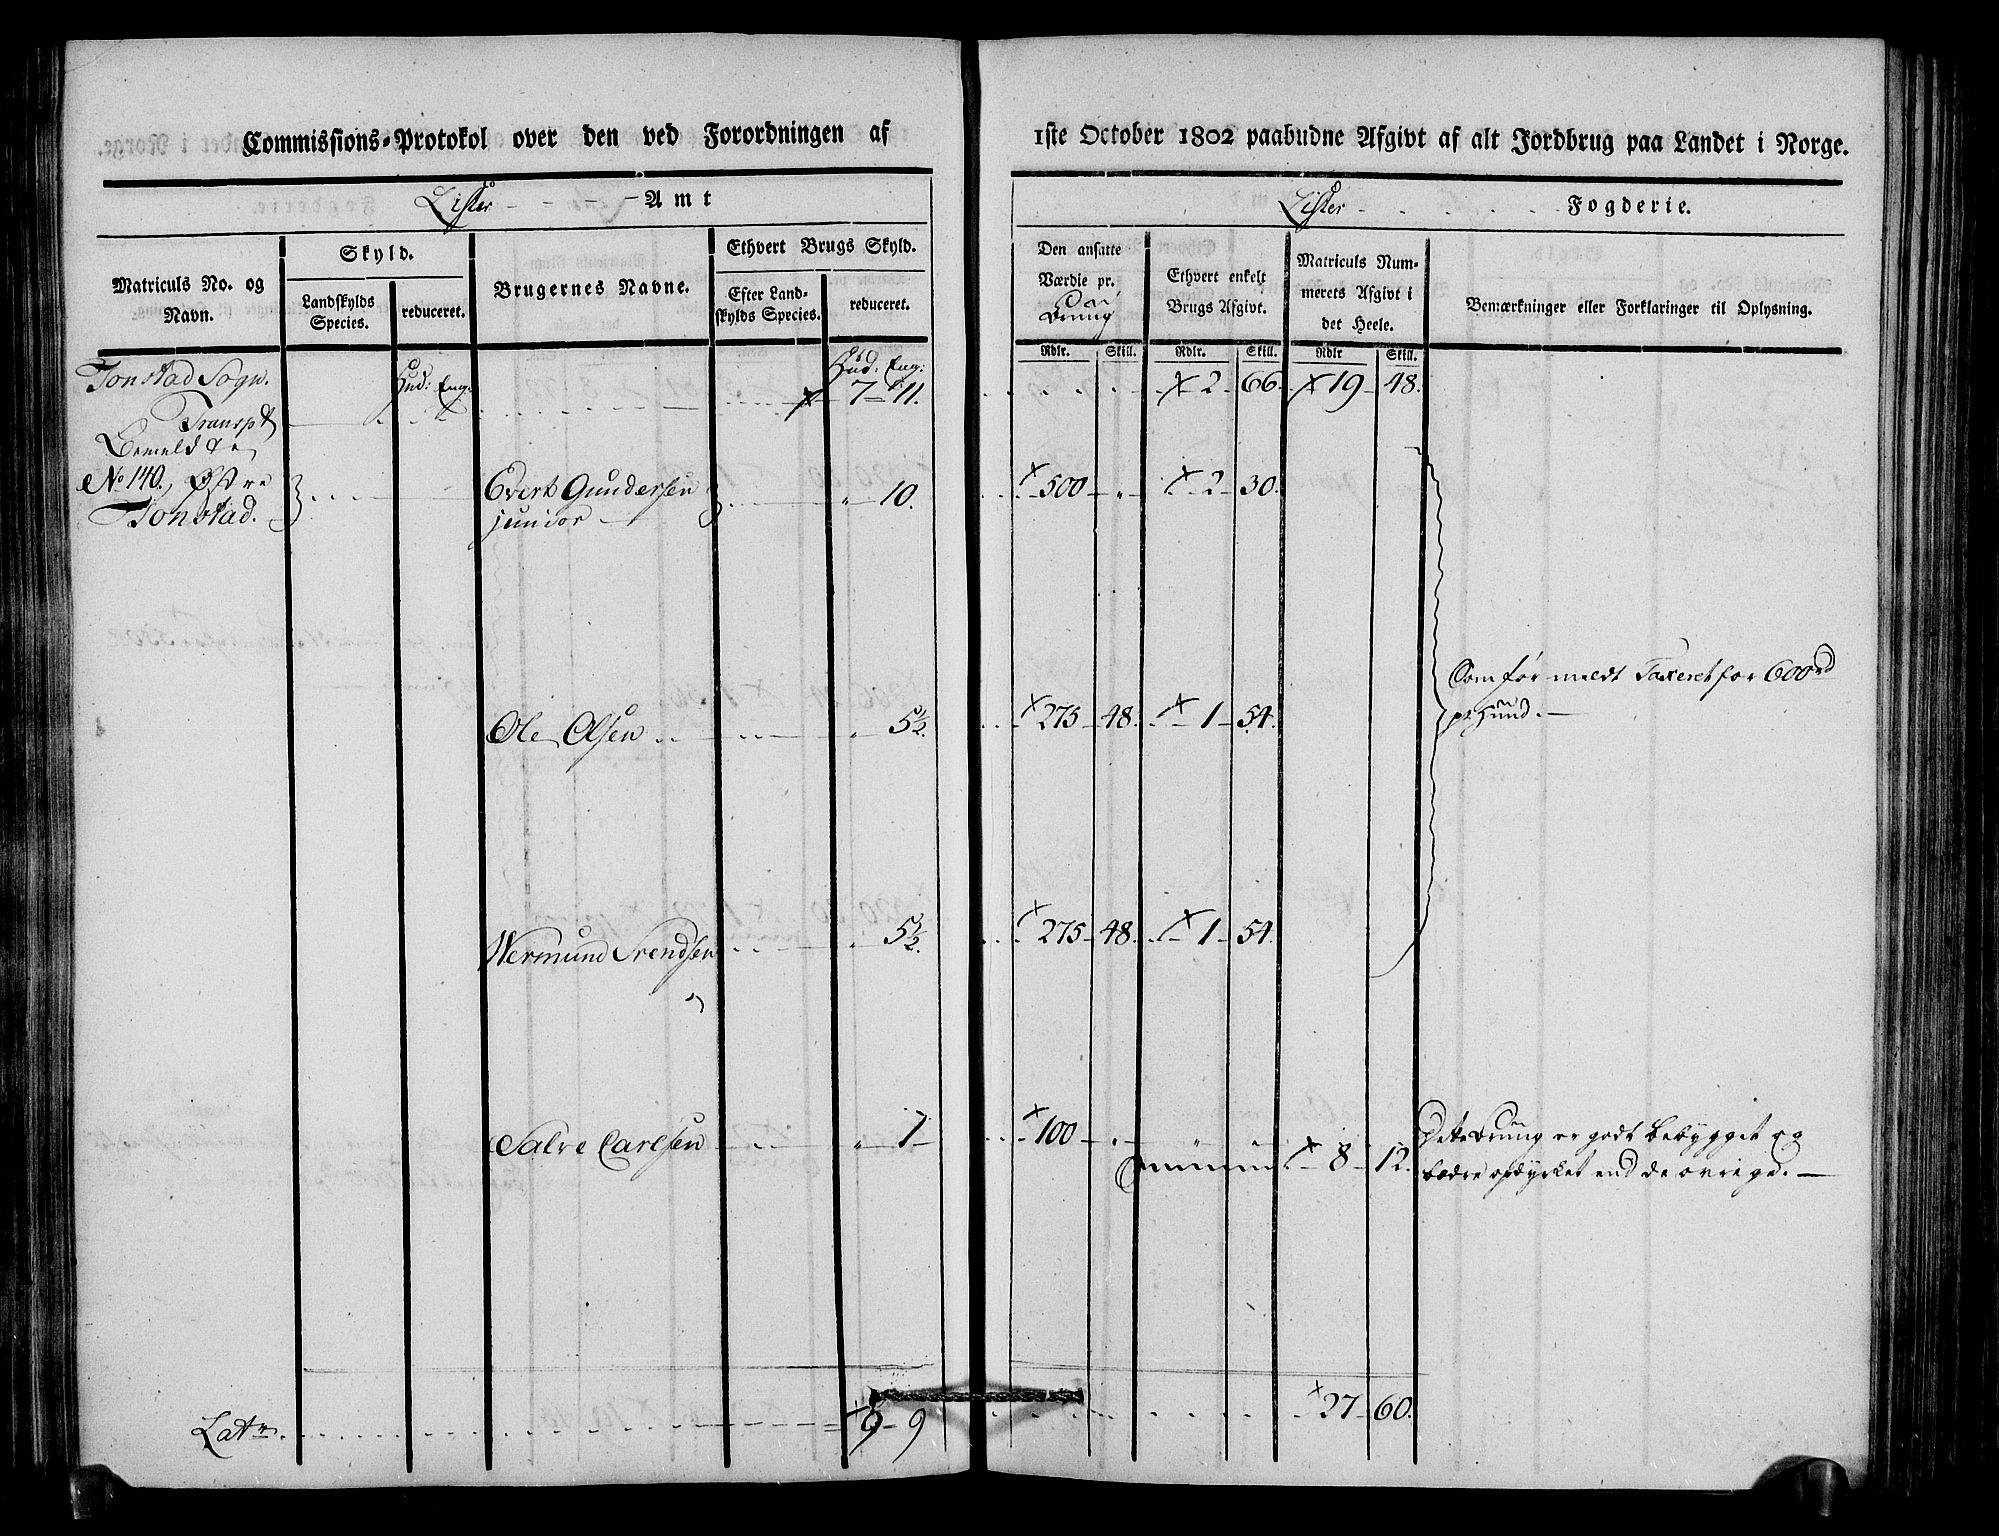 Commissions-Protokol over den ved Forordningen af
1ste October 1802 paabudne Afgivt af alt Jordbrug paa Landet i Norge.
Lister Amt
Lister Fogderie.
Matriculs No. og
Navn.
Skyld.
Landskylds
Species.
reduceret.
Brugernes Navne.
Ethvert Brugs Skyld.
Efter Land-
skylds Species.
reduceret.
Den ansatte
Værdie pr.
Ethvert enkelt
Brugs Afgivt.
Matriculs Num-
merets Afgivt i
det Heele.
Bemærkninger eller Forklaringer til Oplysning.
Rdlr. Skill. Rdlr. Skill. Rdlr Skill.
Tonstad Sogn. Hud: Eng: Hud: Eng:
Transpt 7 11. 2 66. 19 48.
No 140, Østre Evert Gundersen 10. 500 2 30.
Tonstad. junior
Ole Olsen 5½. 275 48. 1 54. Som før meldt Taxeret for 600 rd
pr Hund.
Wermund Svendsen 5½. 275 48. 1 54.
Salve Carlsen 7 100 8 12. Dette er godt bebygget og
bædre opdyrket end de øvrige.
Lat 9 9 27 60.